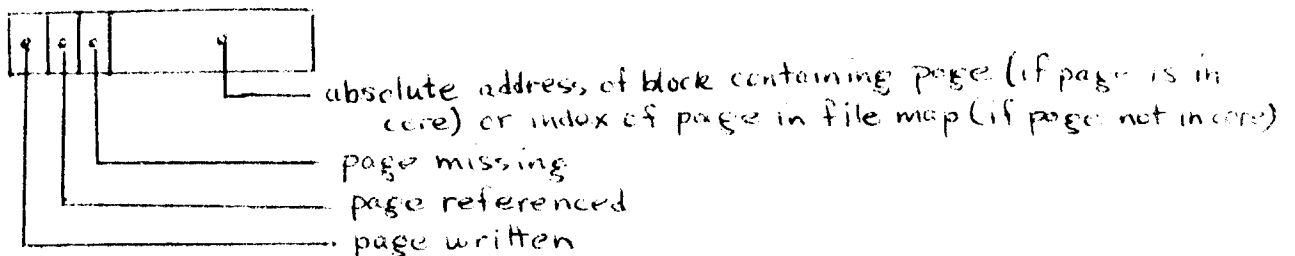 absolute address of block containing page (if page is in
core) or index of page in file map (if page not in core)
page missing
page referenced
page written